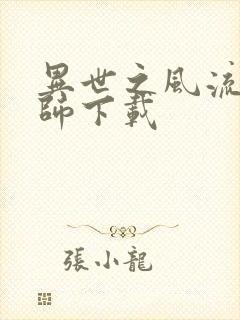 異世之風流
師下載
張小龍